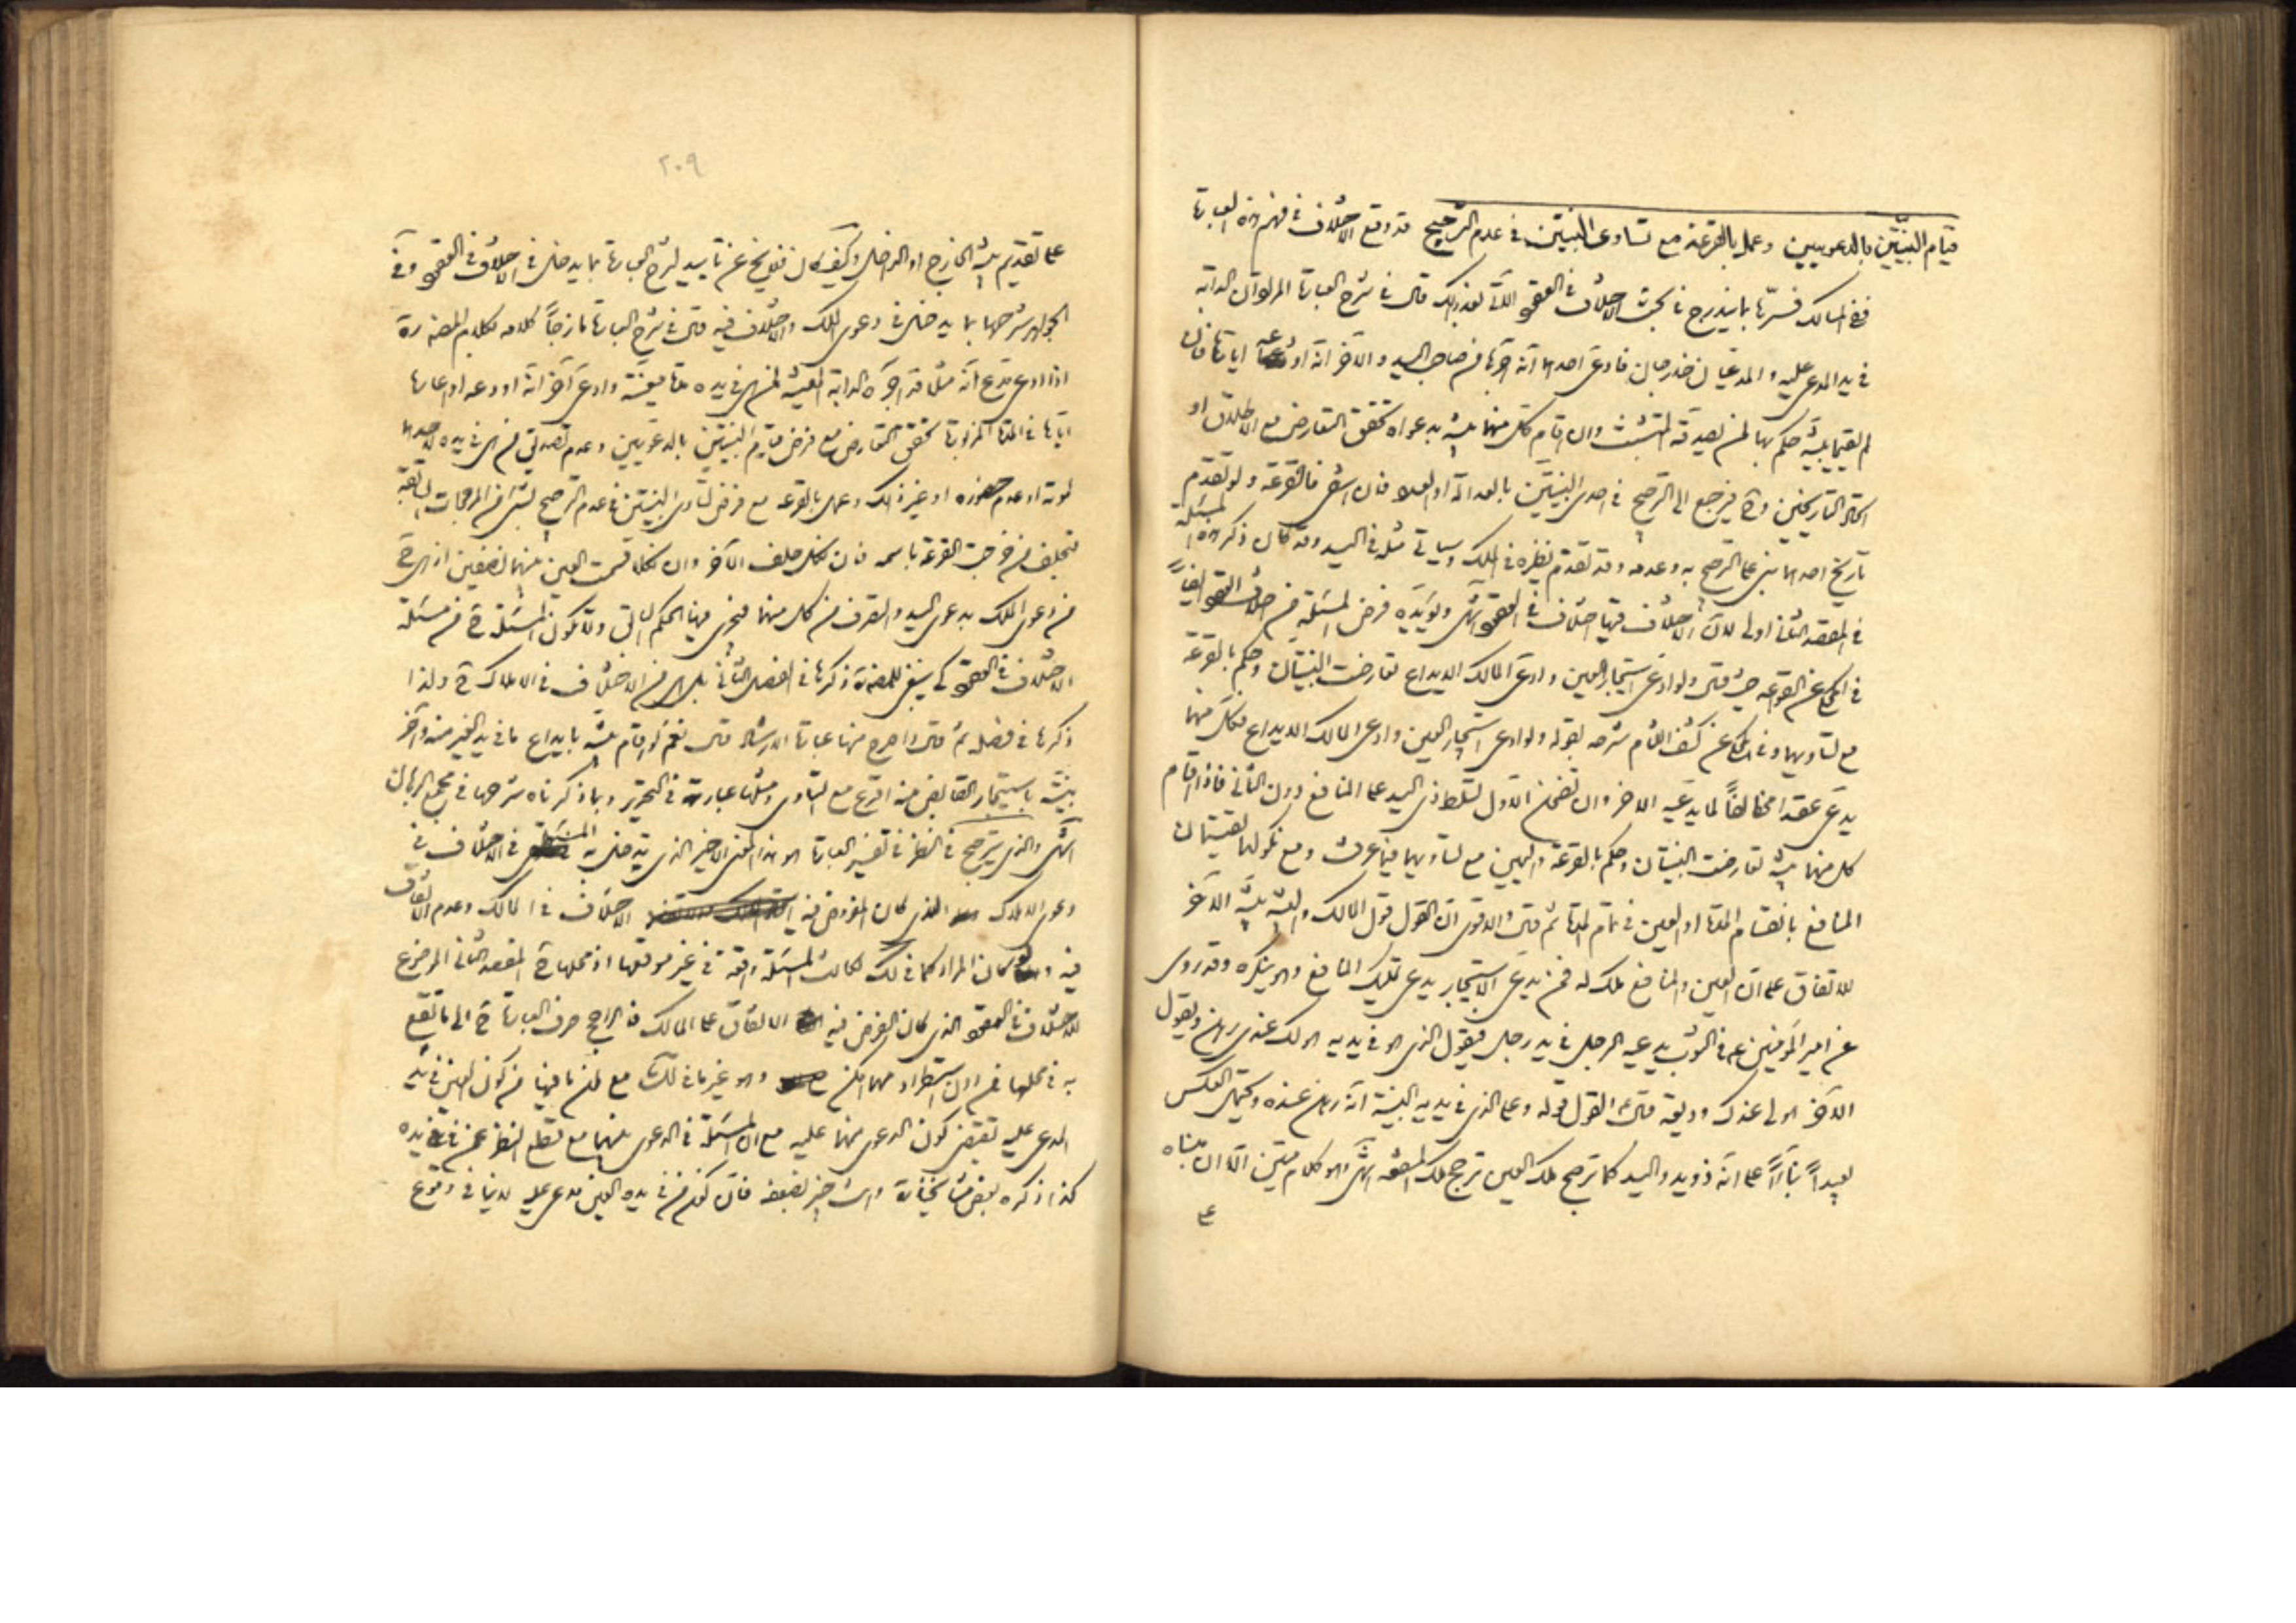 قيام البينتين بالدعويين وعمل بالقرعة مع تساوى البينتين في عدم الترجيح قد وقع الاختلاف في فهم هذه العبارة
ففي المسالك فسرها بما يندرج في بحث الاختلاف في العقود قال في شرح العبارة المراد ان الدابة
في يد المدعى عليه والمدعيان خارجان فادعى احدهما انه آجرها من صاحب اليد والآخر انه اودعه اياها فان
لم يقيما بينة حكم بها لمن يصدقه المتشبث وان اقام كل منهما بينة بدعواه تحقق التعارض مع الاطلاق او
اتحاد التاريخين وح فيرجع الى الترجيح في احدى البينتين بالعدالة او العدد فان انتفى فالقرعة ولو تقدم
تاريخ احدهما بنى على الترجيح به وعدمه وقد تقدم نظيره في الملك وسياتى مثله في اليد وقد كان ذكر هذه المسئلة
في المقصد الثانى اولى لان الاختلاف فيها اختلاف في العقود انتهى ويؤيده فرض المسئلة من اختلاف العقود ايضا
في المحكى عن القواعد حيث قال ولو ادعى استيجار العين وادعى المالك الايداع تعارضت البينتان وحكم بالقرعة
مع تساويهما وفي المحكى عن كشف اللثام شرحه بقوله ولو ادعى استيجار العين وادعى المالك الايداع فكل منهما
يدعى عقدا مخالفا لما يدعيه الاخر وان تضمن الاول تسلط ذى اليد على المنافع دون الثانى فاذا اقام
كل منهما بينة تعارضت البينتان وحكم بالقرعة واليمين مع تساويهما فيما عرفت ومع نكولهما يقتسمان
المنافع بانقسام المدة او العين في تمام المدة ثم قال والاقوى ان القول قول المالك والبينة بينة الآخر
للاتفاق على ان العين والمنافع ملك له فمن يدعى الاستيجار يدعى تمليك المنافع وهو ينكره وقد روى
عن امير المؤمنين ع في الثوب يدعيه الرجل في يد رجل فيقول الذى هو في يديه هو لك عندى رهن ويقول
الآخر هو لى عندك وديعة قال القول قوله وعلى الذى في يديه البينة انه رهن عنده ويحتمل العكس
بعيدا بناء على انه ذو يد واليد كما ترجح ملك العين ترجح ملك المنفعة انتهى وهو كلام متين الا ان بناه
على
٢٠٩
على تقديم بينة الخارج او الداخل وكيف كان فلا يخ عن تاييد لشرح العبارة بما يدخل في الاختلاف في العقود وفي
الجواهر شرحها بما يدخل في دعوى الملك والاختلاف فيه قال في شرح العبارة مازجا كلامه بكلام المصنف ره
اذا ادعى مدع انه مثلا قد آجره الدابة المعينة لمن هى في يده مدة معينة وادعى آخر انه اودعه او اعاره
اياها في المدة المزبورة تحقق التعارض مع فرض قيام البينتين بالدعويين وعدم تصديق من هى في يده لاحدهما
لموته او عدم حضوره او غير ذلك وعمل بالقرعة مع فرض تساوى البينتين في عدم الترجيح بشئ من المرجحات السابقة
فيحلف من خرجت القرعة باسمه فان نكل حلف الآخر وان نكلا قسمت العين بينهما نصفين اذ هى ح
من دعوى الملك بدعوى اليد والتصرف من كل منهما فيجرى فيها الحكم السابق ولا تكون المسئلة ح من مسئلة
الاختلاف في العقود كى ينبغى للمصنف ره ذكرها في الفصل الثانى بل هى من الاختلاف في الاملاك ح ولذا
ذكرها في فصله ثم قال واصرح منها عبارة الارشاد قال نعم لو اقام بينة بايداع ما في يد الغير منه وآخر
بينة باستيجار القابض منه اقرع مع التساوى ومثلها عبارته في التحرير وبما ذكرناه شرحها في مجمع البرهان
انتهى والذى يترجح في النظر في تفسير العبارة هو هذا المعنى الاخير الذى يدخل به المسئلة في الاختلاف في
دعوى الاملاك الذى كان المفروض فيه الاختلاف في المالك وعدم الاتفاق
فيه ولو كان المراد كما في لك لكانت المسئلة واقعة في غير موقعها اذ محلها ح المقصد الثانى الموضوع
للاختلاف في العقود الذى كان الفرض فيه الاتفاق على المالك فالراجح صرف العبارة ح الى ما تقع
به في محلها من دون استطراد مهما امكن وهو غير ما في لك مع ان ما فيها من كون العين في يد
المدعى عليه يقتضى كون الدعوى منهما عليه مع ان المسئلة في الدعوى بينهما مع قطع النظر عمن في يده
كذا ذكره بعض مشايخنا وانت خبير بضعفه فان كون من في يده العين مدعى عليه لا ينافى وقوع